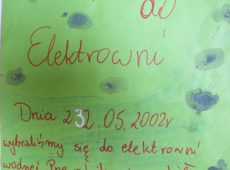 do
Elektrowni
Dnia 232.05.2002r
wybraliśmy się do elektrowni
wodnej